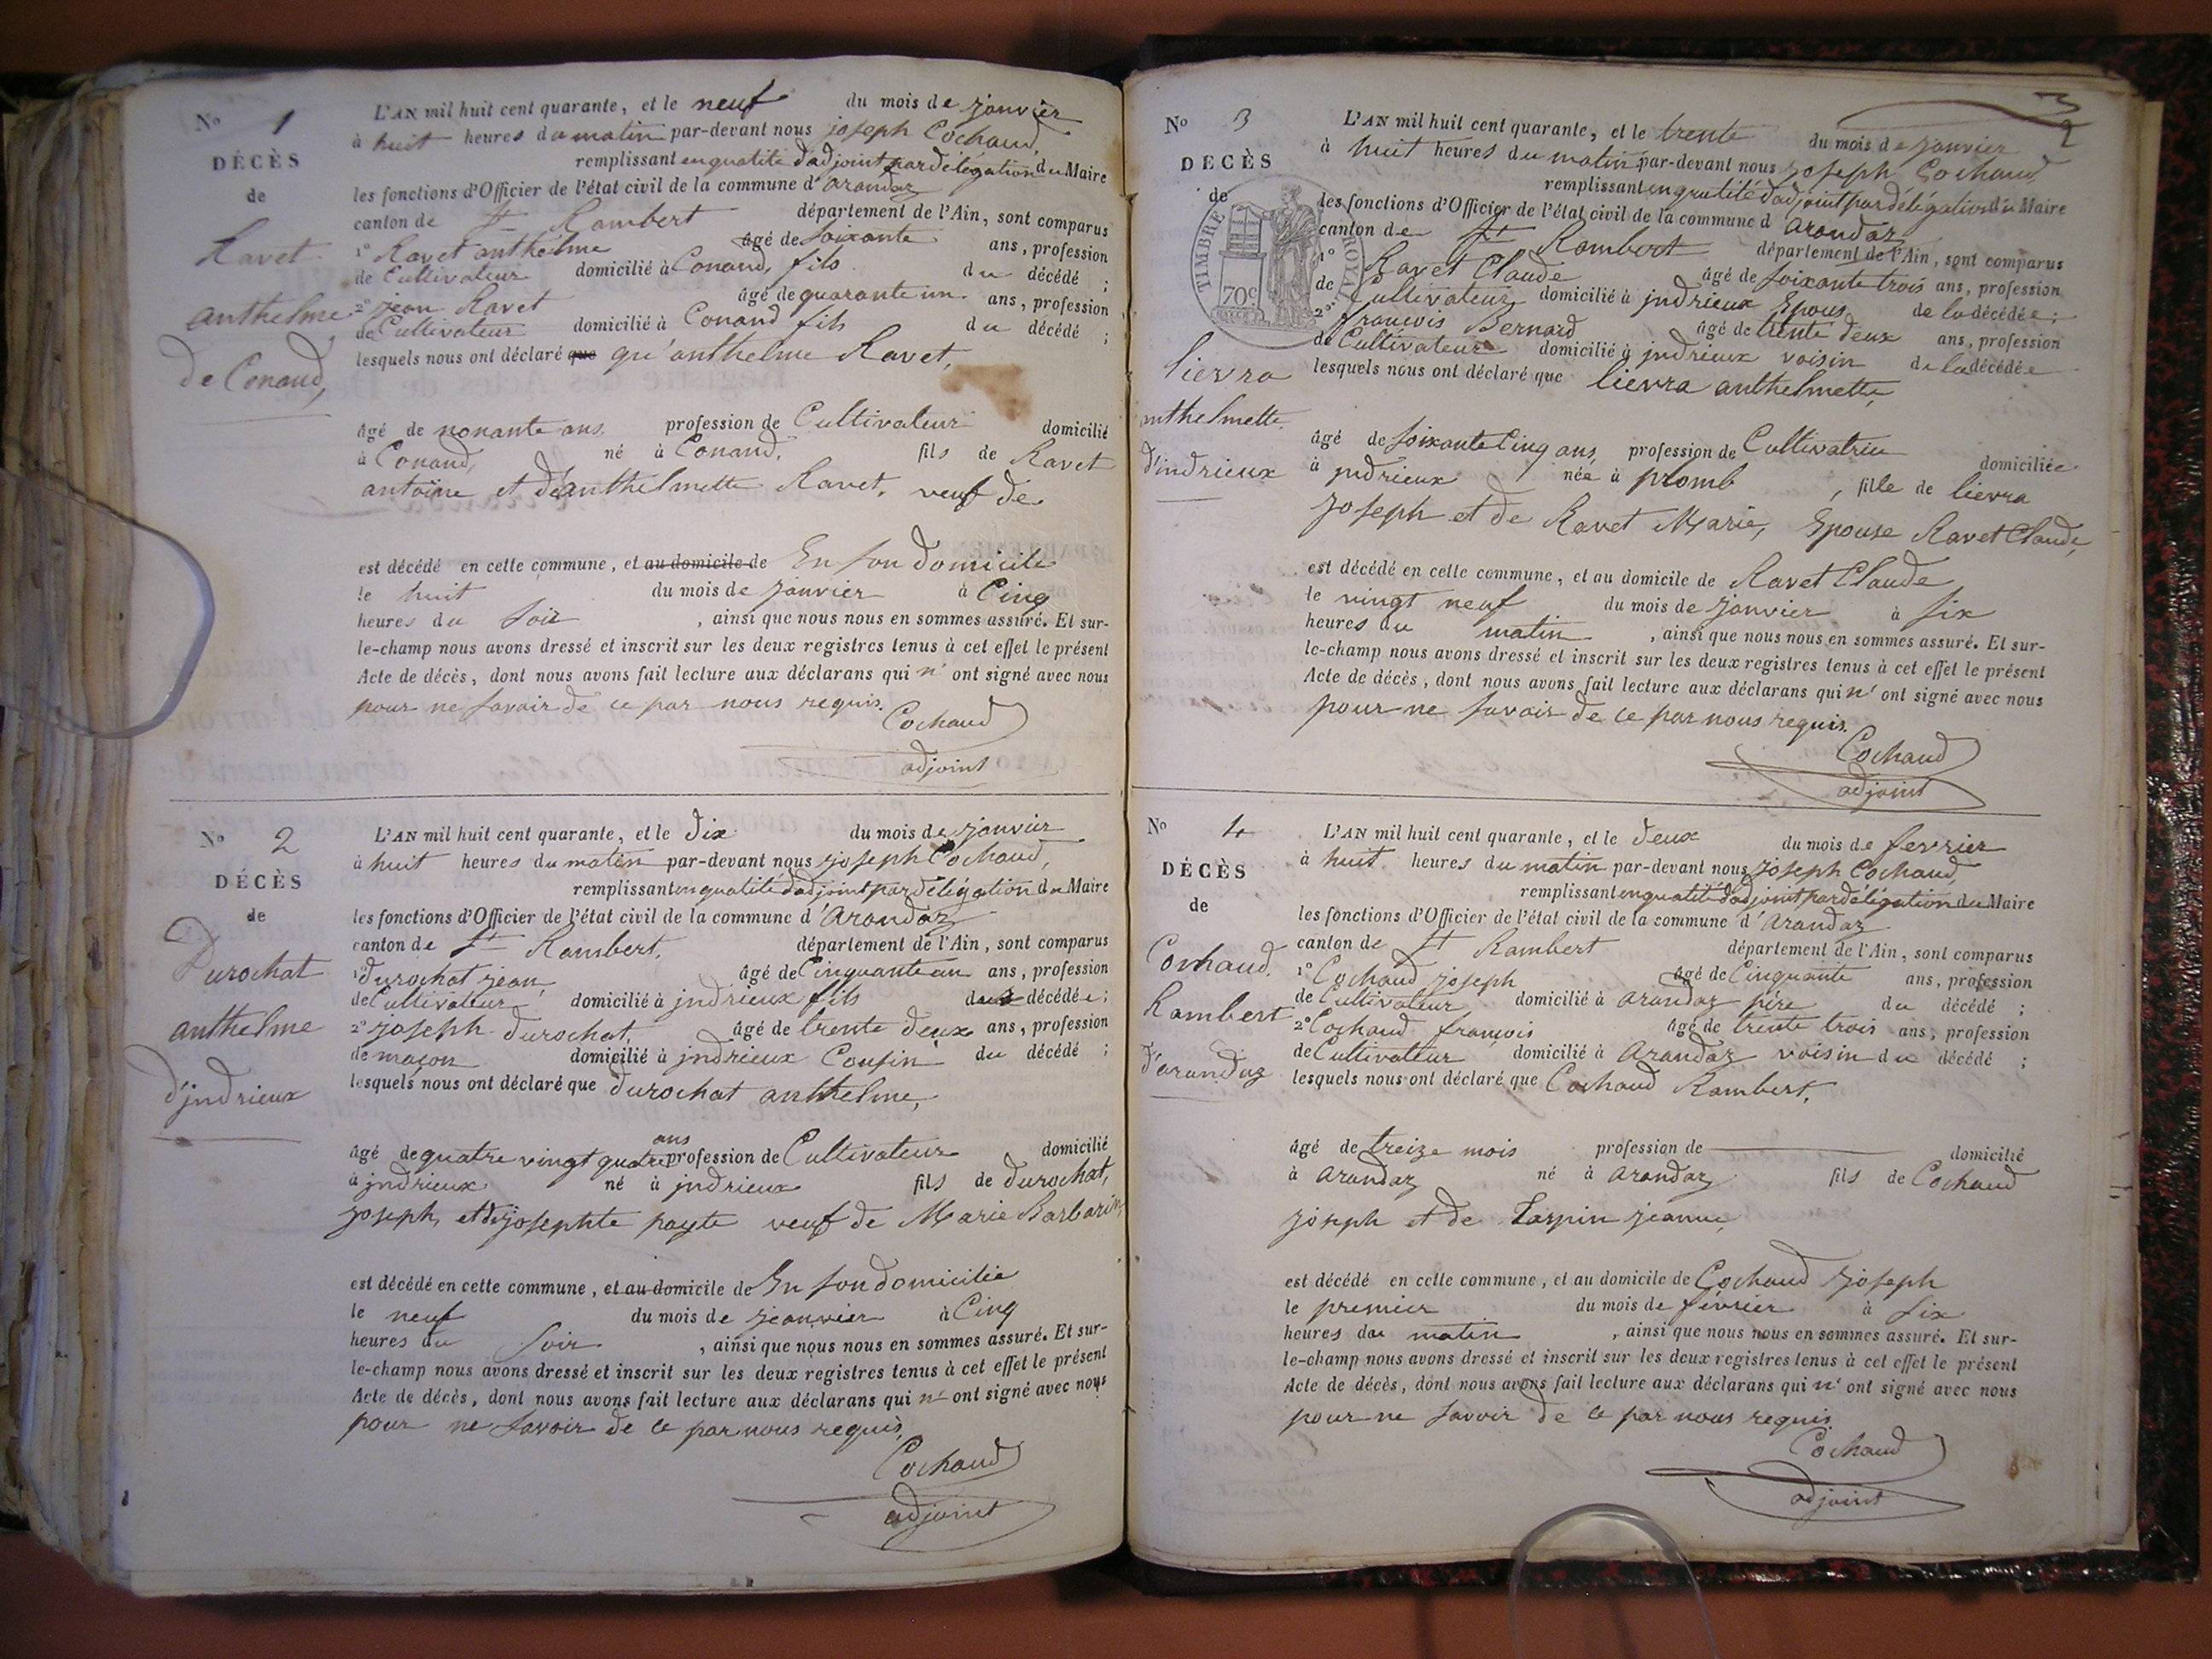 No 1
DÉCÈS
de
Ravet
anthelme
de Conand,
L'AN mil huit cent quarante, et le neuf du mois de janvier
à huit heures du matin par-devant nous joseph Cochaud,
remplissant en qualité d'adjoint par délégation du Maire
les fonctions d'Officier de l'état civil de la commune d'arandaz
canton de St Rambert département de l'Ain, sont comparus
1° Ravet anthelme âgé de soixante ans, profession
de Cultivateur domicilié à Conand, fils du décédé ;
2° jean Ravet âgé de quarante un ans, profession
de Cultivateur domicilié à Conand fils du décédé ;
lesquels nous ont déclaré que qu'anthelme Ravet,
âgé de nonante ans, profession de Cultivateur domicilié
à Conand, né à Conand, fils de Ravet
antoine et de anthelmette Ravet, veuf de
est décédé en cette commune, et au domicile de En son domicile
le huit du mois de janvier à Cinq
heures du soir , ainsi que nous nous en sommes assuré. Et sur-
le-champ nous avons dressé et inscrit sur les deux registres tenus à cet effet le présent
Acte de décès, dont nous avons fait lecture aux déclarans qui n' ont signé avec nous
pour ne savoir de ce par nous requis.
Cochaud
adjoint
No 2
DÉCÈS
de
Durochat
anthelme
d'jndrieux
L'AN mil huit cent quarante, et le dix du mois de janvier
à huit heures du matin par-devant nous joseph Cochaud,
remplissant en qualité d'adjoint par délégation du Maire
les fonctions d'Officier de l'état civil de la commune d'arandaz
canton de St Rambert, département de l'Ain, sont comparus
1° durochat jean, âgé de Cinquante un ans, profession
de Cultivateur domicilié à jndrieux fils du décédé ;
2° joseph durochat, âgé de trente deux ans, profession
de maçon domicilié à jndrieux Cousin du décédé ;
lesquels nous ont déclaré que durochat anthelme,
âgé de quatre vingt quatre ans profession de Cultivateur domicilié
à jndrieux né à jndrieux fils de durochat,
joseph, et de josephte payte veuf de Marie Barbarin,
est décédé en cette commune, et au domicile de En son domicilie
le neuf du mois de jeanvier à Cinq
heures du soir , ainsi que nous nous en sommes assuré. Et sur-
le-champ nous avons dressé et inscrit sur les deux registres tenus à cet effet le présent
Acte de décès, dont nous avons fait lecture aux déclarans qui n' ont signé avec nous
pour ne savoir de ce par nous requis,
Cochaud
adjoint
3
2
No 3
DÉCÈS
de
TIMBRE ROYAL
70c
lievra
anthelmette
d'indrieux
L'AN mil huit cent quarante, et le trente du mois de janvier
à huit heures du matin par-devant nous joseph Cochaud,
remplissant en qualité d'adjoint par délégation du Maire
les fonctions d'Officier de l'état civil de la commune d arandaz
canton de St Rambert département de l'Ain, sont comparus
1° Ravet Claude âgé de soixante trois ans, profession
de Cultivateur domicilié à jndrieux Epoux de la décédée ;
2° françois Bernard âgé de trente deux ans, profession
de Cultivateur domicilié à jndrieux voisin de la décédée
lesquels nous ont déclaré que lievra anthelmette,
âgé de soixante Cinq ans, profession de Cultivatrice domiciliée
à jndrieux née à plomb , fille de lievra
joseph et de Ravet Marie, Epouse Ravet Claude,
est décédé en cette commune, et au domicile de Ravet Claude
le vingt neuf du mois de janvier à six
heures du matin , ainsi que nous nous en sommes assuré. Et sur-
le-champ nous avons dressé et inscrit sur les deux registres tenus à cet effet le présent
Acte de décès, dont nous avons fait lecture aux déclarans qui n' ont signé avec nous
pour ne savoir de ce par nous requis.
Cochaud
adjoint
No 4
DÉCÈS
de
Cochaud
Rambert
d'arandaz
L'AN mil huit cent quarante, et le deux du mois de fevrier
à huit heures du matin par-devant nous joseph Cochaud,
remplissant en qualité d'adjoint par délégation du Maire
les fonctions d'Officier de l'état civil de la commune d'arandaz
canton de St Rambert département de l'Ain, sont comparus
1° Cochaud joseph âgé de Cinquante ans, profession
de Cultivateur domicilié à arandaz père du décédé ;
2° Cochaud françois âgé de trente trois ans, profession
de Cultivateur domicilié à Arandaz voisin du décédé ;
lesquels nous ont déclaré que Cochaud Rambert,
âgé de treize mois profession de domicilié
à arandaz né à arandaz fils de Cochaud
joseph et de Tarpin jeanne,
est décédé en cette commune, et au domicile de Cochaud joseph
le premier du mois de février à six
heures du matin , ainsi que nous nous en sommes assuré. Et sur-
le-champ nous avons dressé et inscrit sur les deux registres tenus à cet effet le présent
Acte de décès, dont nous avons fait lecture aux déclarans qui n' ont signé avec nous
pour ne savoir de ce par nous requis.
Cochaud
adjoint